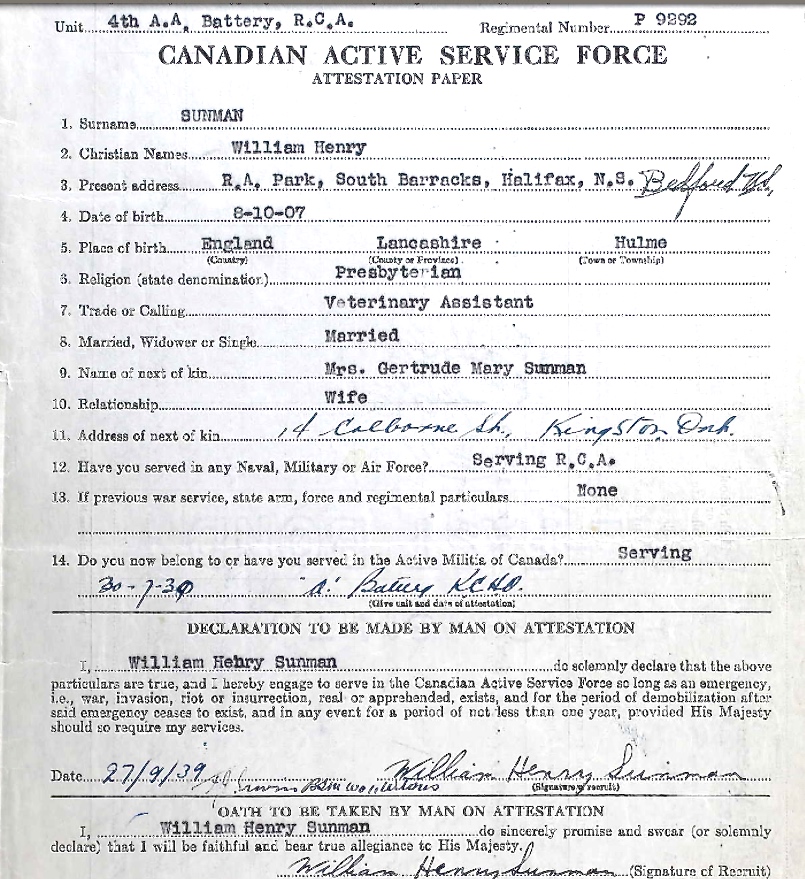 Unit 4th A.A. Battery, R.C.A. Regimental Number P 9292
CANADIAN ACTIVE SERVICE FORCE
ATTESTATION PAPER
1. Surname SUNMAN
2. Christian Names William Henry
3. Present address R.A. Park, South Barracks, Halifax, N.S. Bedford
4. Date of birth 8-10-07
5. Place of birth England Lancashire Hulme
(Country) (County or Province) (Town or Township)
6. Religion (state denomination) Presbyterian
7. Trade or Calling Veterinary Assistant
8. Married, Widower or Single Married
9. Name of next of kin Mrs. Gertrude Mary Sunman
10. Relationship Wife
11. Address of next of kin 14 Colborne St. Kingston, Ont.
12. Have you served in any Naval, Military or Air Force? Serving R.C.A.
13. If previous war service, state arm, force and regimental particulars None
14. Do you now belong to or have you served in the Active Militia of Canada? Serving
30-7-30 "A" Battery RCHA.
(Give unit and date of attestation)
DECLARATION TO BE MADE BY MAN ON ATTESTATION
I, William Hehry Sunman do solemnly declare that the above
particulars are true, and I hereby engage to serve in the Canadian Active Service Force so long as an emergency,
i.e., war, invasion, riot or insurrection, real or apprehended, exists, and for the period of demobilization after
said emergency ceases to exist, and in any event for a period of not less than one year, provided His Majesty
should so require my services.
Date 27/9/39 William Henry Sunman
(Signature of recruit)
OATH TO BE TAKEN BY MAN ON ATTESTATION
I, William Henry Sunman do sincerely promise and swear (or solemnly
declare) that I will be faithful and bear true allegiance to His Majesty.
William Henry Sunman (Signature of Recruit)